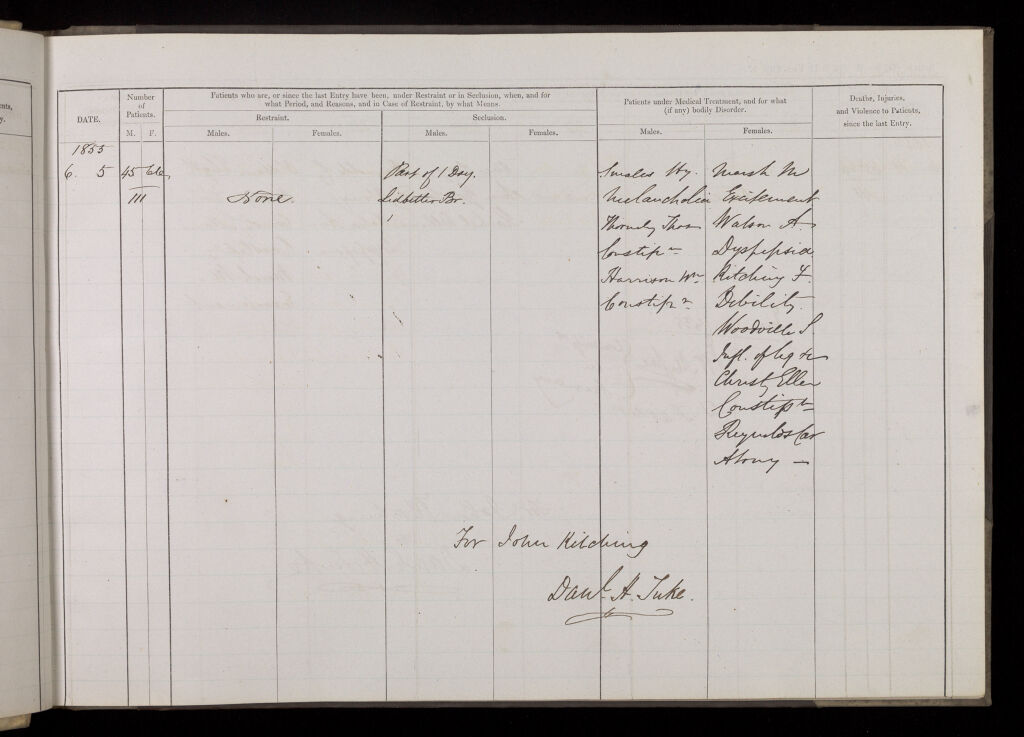 ents,
y.
Number
of
Patients.
Patients who are, or since the last Entry have been, under Restraint or in Seclusion, when, and for
what Period, and Reasons, and in Case of Restraint, by what Means.
Patients under Medical Treatment, and for what
(if any) bodily Disorder.
Deaths, Injuries,
and Violence to Patients,
since the last Entry.
DATE.
Restraint.
Seclusion.
M. F.
Males. Females. Males. Females. Males. Females.
1855
6. 5 45
Part of 1 Day.
Smales Hy. Marsh M
111
None. Lidbetter Br.
Melancholia Excitement
Thornely Thos Watson A.
Constipn Dyspepsia
Harrison Wm Kitching F.
Constipn Debility.
Woodville S.
Infl. of leg &c
Christy Ellen
Constipn
Reynolds Car
Atony —
For John Kitching
Danl. H. Tuke.